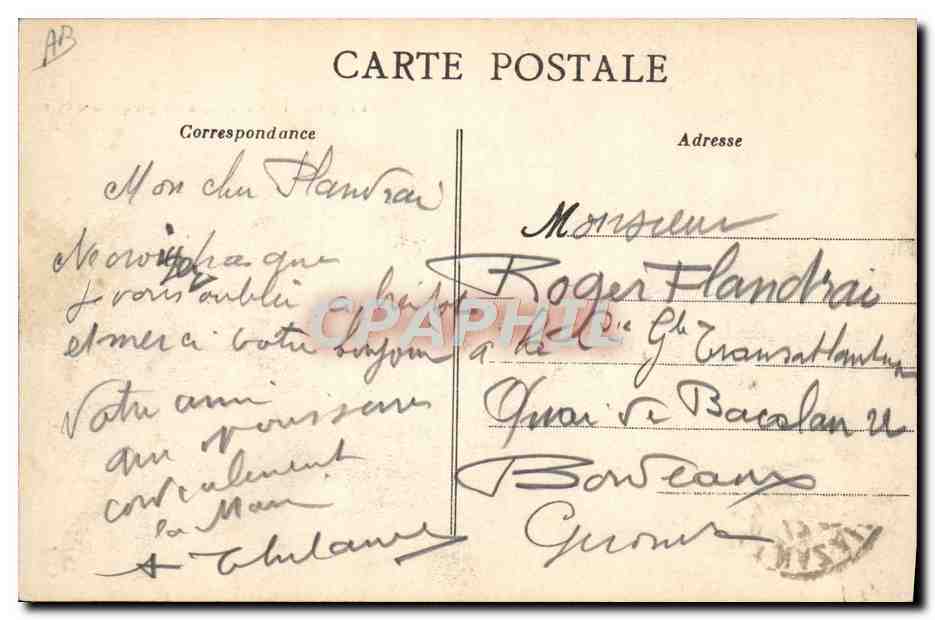 AB
CARTE POSTALE
Correspondance
Mon cher Flandrai
Ne croi pas que
je vous oublie
et merci votre bonjour
Votre ami
qui vous serre
cordialement
la Main
Adresse
Monsieur
Roger Flandrai
à la Cie Gle Transatlantique
Quai de Bacalan
Bordeaux
Gironde
CPAPHIL